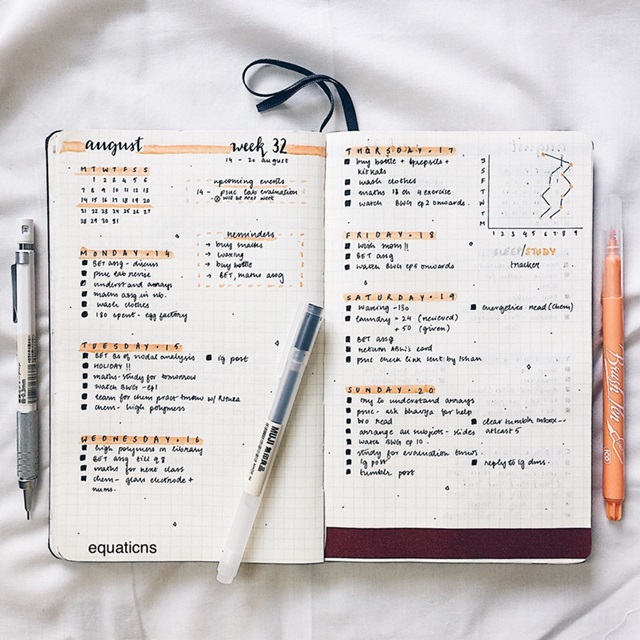 august
week 32
14 - 20 august
M T W T F S S
1 2 3 4 5 6
7 8 9 10 11 12 13
14 15 16 17 18 19 20
21 22 23 24 25 26 27
28 29 30 31
upcoming events
14 - psuc lab evaluation
will be next week
reminders
→ buy maths
→ waxing
→ buy bottle
→ BET, maths assg
MONDAY.14
BET assg - discuss
psuc lab
understand arrays
maths assg in nb.
wash clothes
180 spent - egg factory
TUESDAY.15
BET 80 of nodal analysis
ig post
HOLIDAY !!
maths - study for tomorrow
watch BWGI - ep1
learn for chem pract tmrw w/
chem - high polymers
WEDNESDAY.16
high polymers in library
BET assg till q.8
maths for next class
chem - glass electrode +
nums.
equations
THURSDAY.17
buy bottle +
kitkats
wash clothes
maths 13 ch 4 exercise
watch BWG ep2 onwards
S
S
F
T
W
T
M
1 2 3 4 5 6 7 8 9
SLEEP/STUDY
tracker
FRIDAY.18
wish mom !!
BET assg
watch BWG ep5 onwards
SATURDAY.19
waxing - 130
energetics read (chem)
laundry = 24 (received)
+ 50 (given)
BET assg
return card
psuc check link sent by Ishan
SUNDAY.20
try to understand arrays
psuc - ask bhavya for help
bio read
clear tumblr inbox -
atleast 5
arrange all subjects - slides
watch BWG ep 10.
study for evaluation tmrw
ig post
reply to ig dms.
tumblr post
MUJI 無印良品